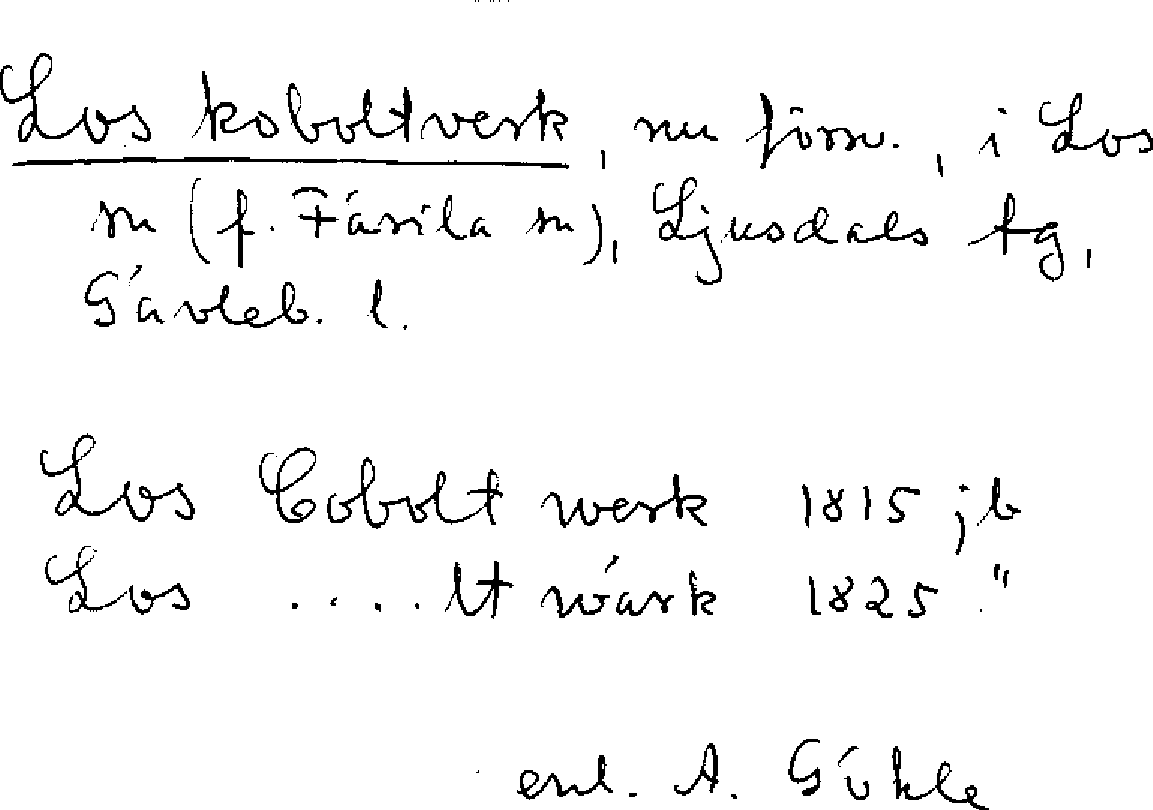 Los koboltverk, nu förw., i Los
sn (f. Färila sn), Ljusdals tg,
Gävleb. l.
Los Cobolt werk 1815 jb
Los ....lt wärk 1825 "
enl. A. Gökle